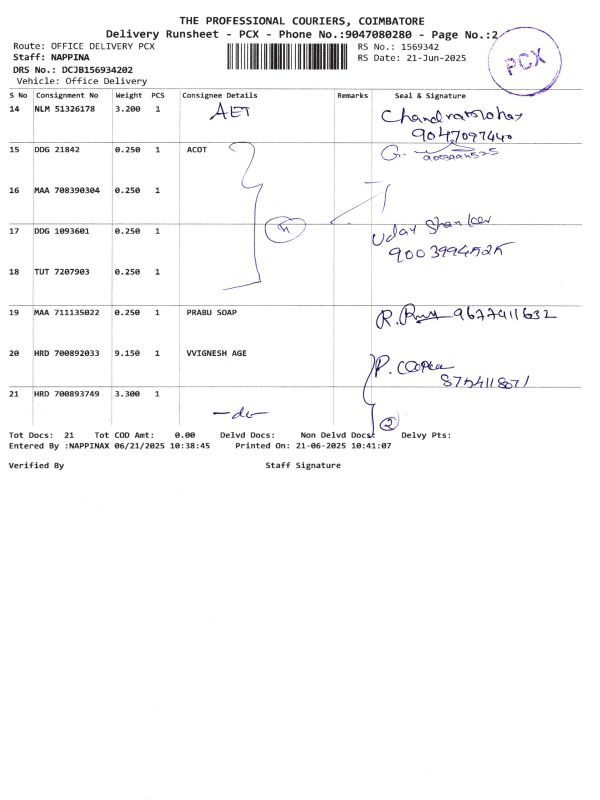 THE PROFESSIONAL COURIERS, COIMBATORE
Delivery Runsheet - PCX - Phone No.:9047080280 - Page No.:2
Route: OFFICE DELIVERY PCX
Staff: NAPPINA
DRS No.: DCJB156934202
Vehicle: Office Delivery
RS No.: 1569342
RS Date: 21-Jun-2025
PCX
S No Consignment No Weight PCS Consignee Details Remarks Seal & Signature
14 NLM 51326178 3.200 1 AET
9047097440
15 DDG 21842 0.250 1 ACOT
16 MAA 708390304 0.250 1
17 DDG 1093601 0.250 1 Uday Shanker
18 TUT 7207903 0.250 1
19 MAA 711135022 0.250 1 PRABU SOAP 9677911632
20 HRD 700892033 9.150 1 VVIGNESH AGE
21 HRD 700893749 3.300 1
-do-
2
Tot Docs: 21 Tot COD Amt: 0.00 Delvd Docs: Non Delvd Docs: Delvy Pts:
Entered By :NAPPINAX 06/21/2025 10:38:45 Printed On: 21-06-2025 10:41:07
Verified By Staff Signature